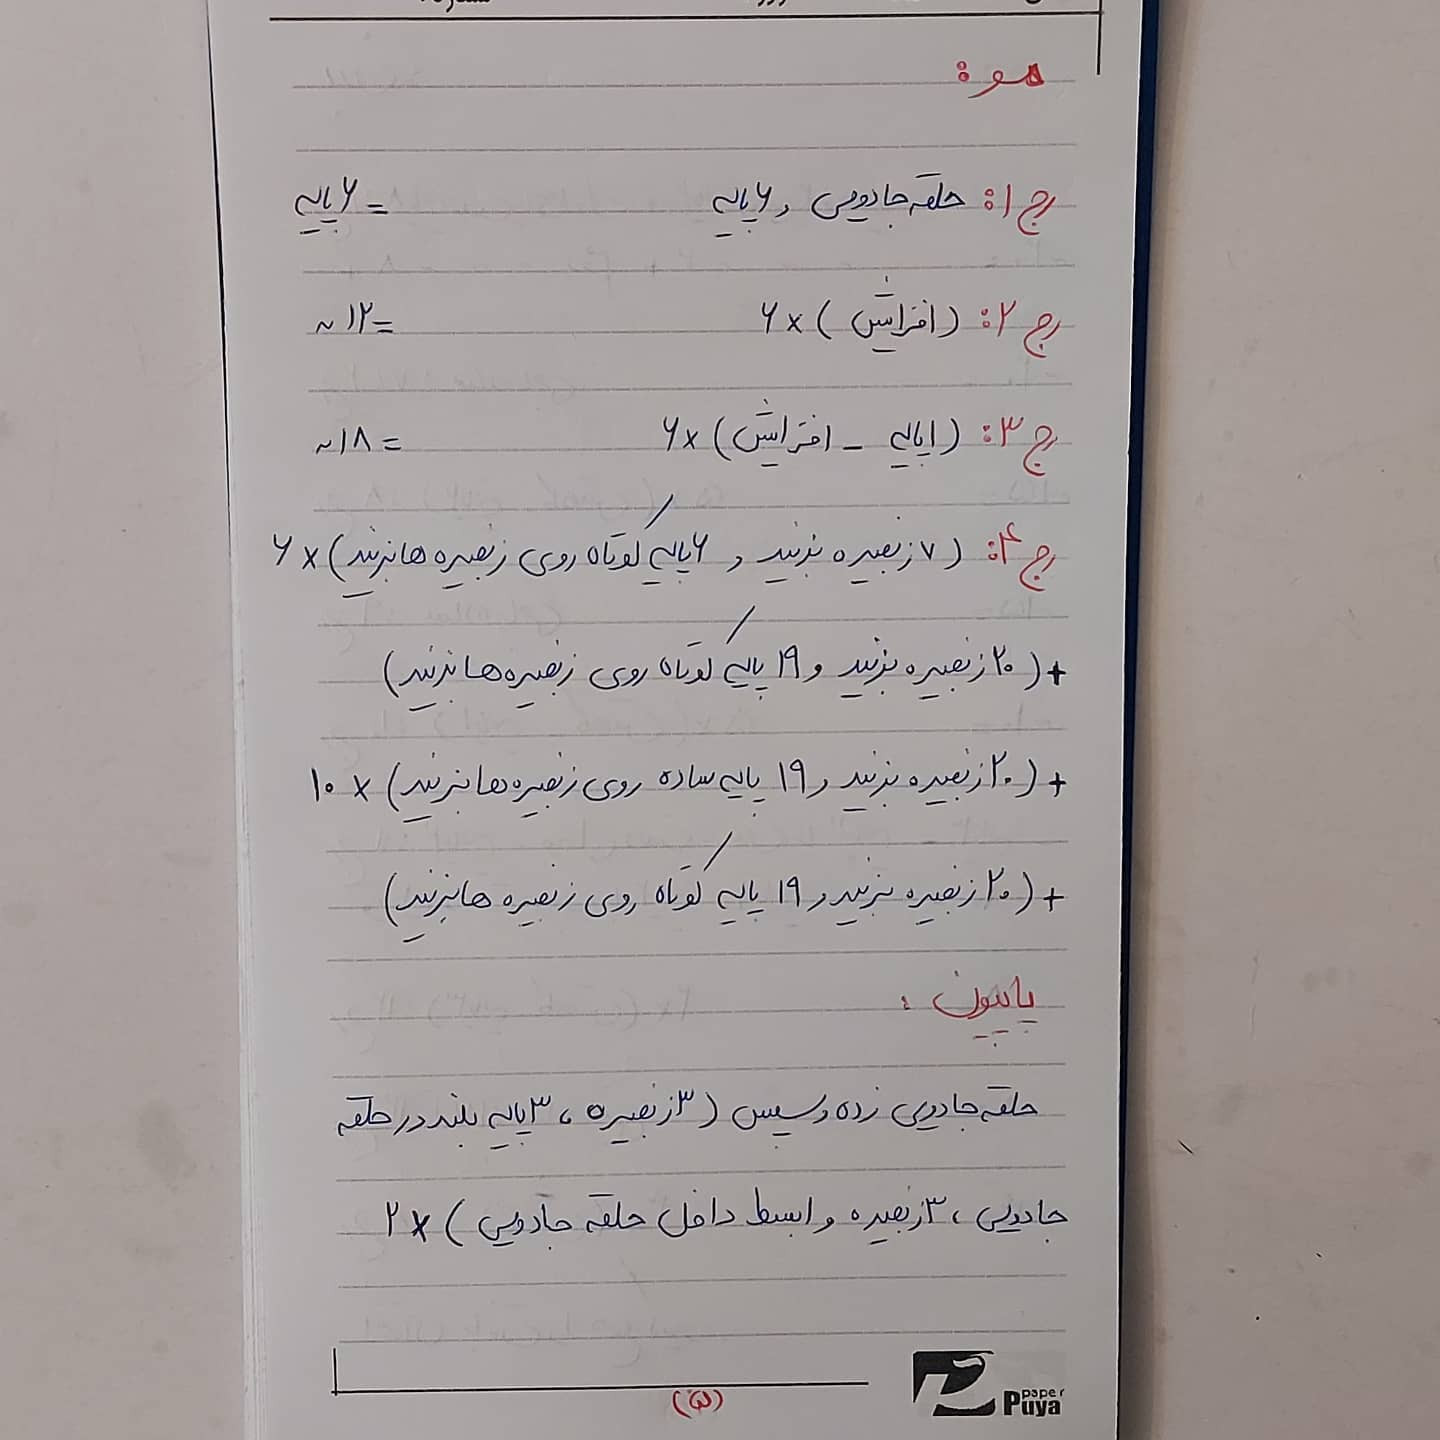 مو:
رج ۱: حلقه جادویی و ۶ پایه = ۶ پایه
رج ۲: (افزایش) × ۶ = ۱۲ ~
رج ۳: (۱ پایه - افزایش) × ۶ = ۱۸ ~
رج ۴: (۷ زنجیره بزنید و ۶ پایه کوتاه روی زنجیره ها بزنید) × ۶
+ (۲۰ زنجیره بزنید و ۱۹ پایه کوتاه روی زنجیره ها بزنید)
+ (۲۰ زنجیره بزنید و ۱۹ پایه ساده روی زنجیره ها بزنید) × ۱۰
+ (۲۰ زنجیره بزنید و ۱۹ پایه کوتاه روی زنجیره ها بزنید)
پاپیون:
حلقه جادویی زده و سپس (۳ زنجیره، ۳ پایه بلند در حلقه
جادویی، ۳ زنجیره و ۱ بسط داخل حلقه جادویی) × ۲
paper
Puya
(۵)